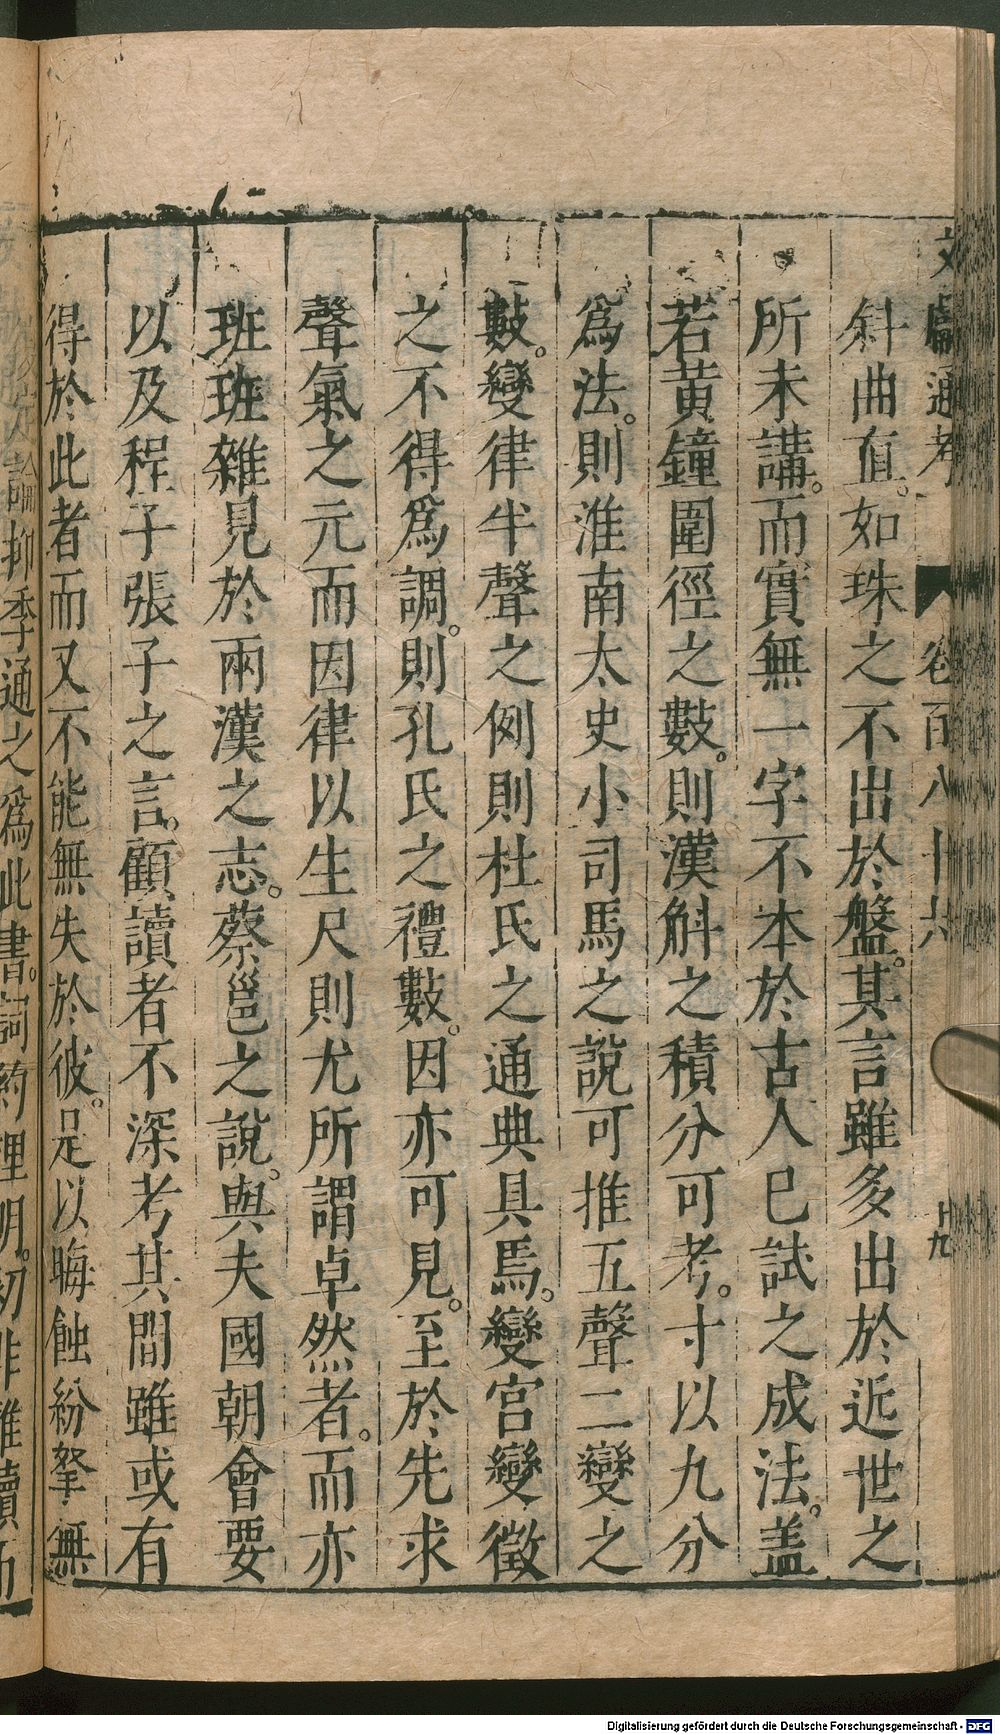 文獻通考 卷百八十六 十九
斜曲直。如珠之不出於盤。其言雖多出於近世之
所未講。而實無一字不本於古人已試之成法。盖
若黄鐘圍徑之數。則漢斛之積分可考。寸以九分
爲法。則淮南太史小司馬之說可推五聲二變之
數。變律半聲之例則杜氏之通典具焉。變宮變徵
之不得爲調。則孔氏之禮數。因亦可見。至於先求
聲氣之元而因律以生尺則尤所謂卓然者。而亦
班班雜見於兩漢之志。蔡邕之說。與夫國朝會要
以及程子張子之言。顧讀者不深考其間雖或有
得於此者而又不能無失於彼。是以晦蝕紛拏無
論抑季通之爲此書。詞約理明。初非難讀而
Digitalisierung gefördert durch die Deutsche Forschungsgemeinschaft - DFG